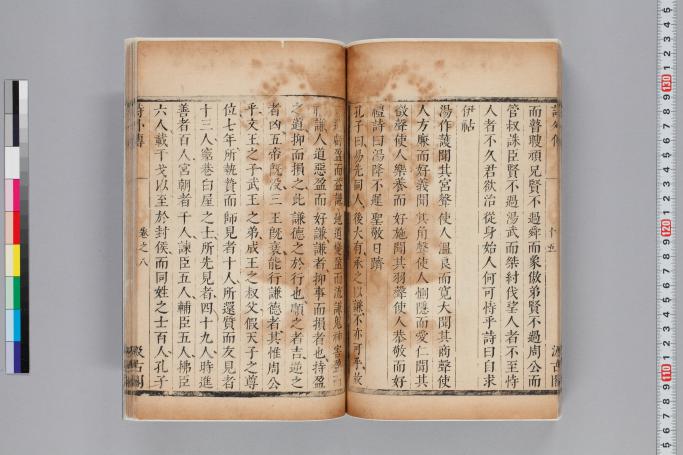 而瞽瞍頑兄賢不過舜而象傲弟賢不過周公而
管叔誅臣賢不過湯武而桀紂伐望人者不至恃
人者不久君欲治從身始人何可恃乎詩曰自求
伊祜
湯作護聞其宮聲使人溫良而寬大聞其商聲使
人方廉而好義聞其角聲使人惻隱而愛仁聞其
徵聲使人樂養而好施聞其羽聲使人恭敬而好
禮詩曰湯降不遲聖敬日躋
孔子曰易先同人後大有承之以謙不亦可乎故
天道虧盈而益謙地道變盈而流謙鬼神害盈而
福謙人道惡盈而好謙謙者抑事而損者也持盈
之道抑而損之此謙德之於行也順之者吉逆之
者凶五帝既沒三王既衰能行謙德者其惟周公
乎文王之子武王之弟成王之叔父假天子之尊
位七年所執贄而師見者十人所還質而友見者
十三人窮巷白屋之士所先見者四十九人時進
善者百人宮朝者千人諫臣五人輔臣五人拂臣
六人載干戈以至於封侯而同姓之士百人孔子
卷之八
汲古閣